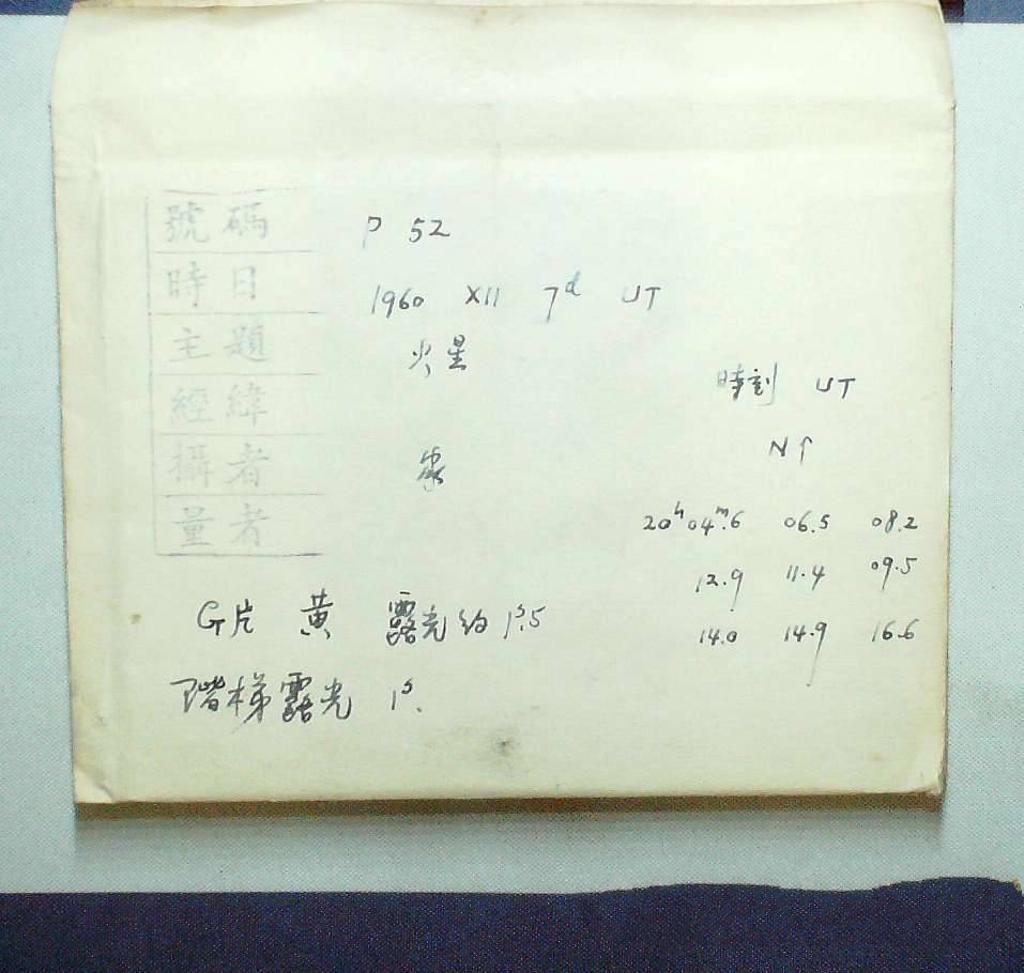 號碼 P 52
時日 1960 XII 7d UT
主題 火星
經緯
攝者
量者
時刻 UT
N↑
20h04m.6 06.5 08.2
12.9 11.4 09.5
14.0 14.9 16.6
G片 黃 露光約 1s.5
階梯露光 1s.